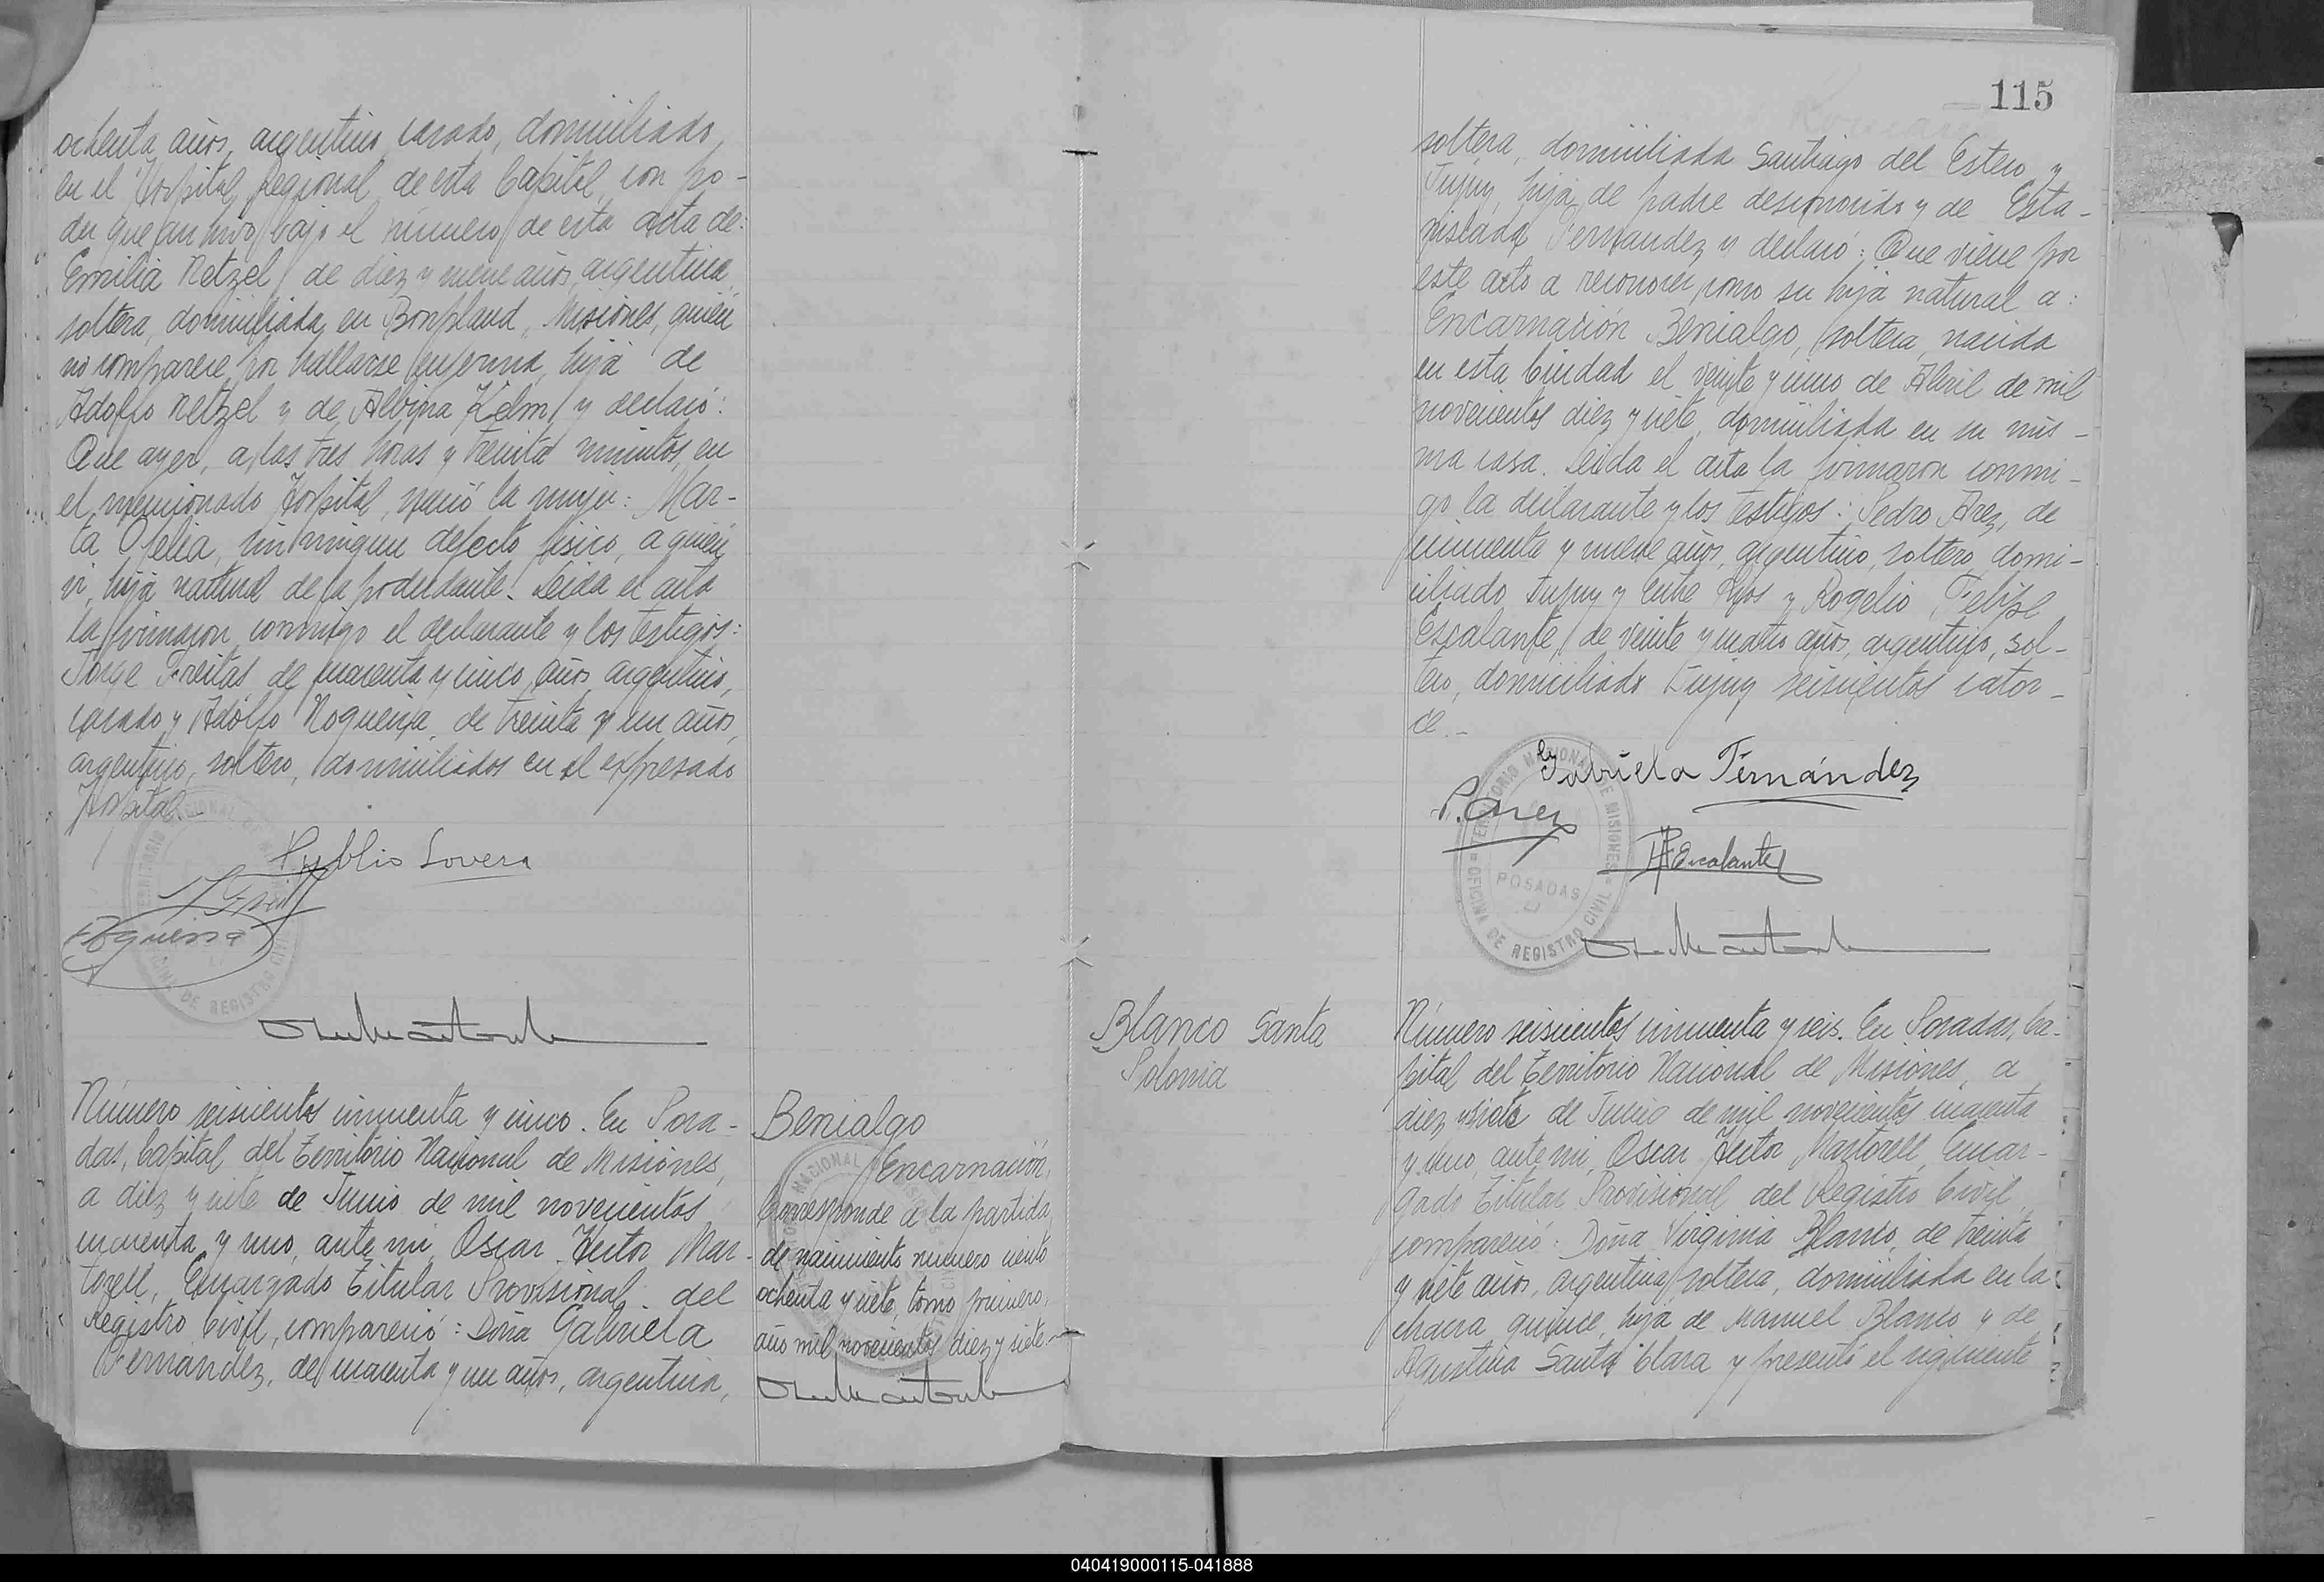 ochenta años, argentino, casado, domiciliado
en el Hospital Regional de esta Capital, con po-
der que archivo bajo el número de esta acta de:
Emilia Netzel, de diez y nueve años, argentina,
soltera, domiciliada en Bonpland, Misiones, quién
no comparece por hallarse enferma, hija de
Adolfo Netzel y de Albina Kelm, y declaró:
Que ayer, a las tres horas y treinta minutos, en
el mencionado Hospital, nació la mujer: Mar-
ta Ofelia, sin ningun defecto físico, a quién
vi, hija natural de la poderdante. Leída el acta
la firmaron conmigo el declarante y los testigos:
Jorge Freitas, de cuarenta y cinco años, argentino,
casado y Adolfo Nogueira, de treinta y un años,
argentino, soltero, domiciliados en el expresado
Hospital.-
Publio Lovera
Nogueira
Número seiscientos cincuenta y cinco. En Posa-
das, Capital del Territorio Nacional de Misiones,
a diez y siete de Junio de mil novecientos
cuarenta y uno, ante mi, Oscar Hector Mar-
torell, Encargado Titular Provisional del
Registro Civil, compareció: Doña Gabriela
Fernandez, de cuarenta y un años, argentina,
Benialgo
Encarnación,
Corresponde a la partida
de nacimiento numero ciento
ochenta y siete, tomo primero,
año mil novecientos diez y siete.-
115
soltera, domiciliada Santiago del Estero y
Jujuy, hija de padre desconocido y de Esta-
nislada Fernandez y declaró: Que viene por
este acto a reconocer como su hija natural a:
Encarnación Benialgo, soltera, nacida
en esta Ciudad el veinte y uno de Abril de mil
novecientos diez y siete, domiciliada en su mis-
ma casa. Leída el acta la firmaron conmi-
go la declarante y los testigos: Pedro Arez, de
cincuenta y nueve años, argentino, soltero, domi-
ciliado Jujuy y Entre Ríos y Rogelio Felipe
Escalante, de veinte y cuatro años, argentino, sol-
tero, domiciliado Jujuy seiscientos cator-
ce.-
Gabriela Fernández
P. Arez
RFEscalante
TERRITORIO NACIONAL DE MISIONES
POSADAS
OFICINA DE REGISTRO CIVIL
Blanco Santa
Polonia
Número seiscientos cincuenta y seis. En Posadas, Ca-
pital del Territorio Nacional de Misiones, a
diez y siete de Junio de mil novecientos cuarenta
y uno, ante mi, Oscar Hector Martorell, Encar-
gado Titular Provisional del Registro Civil,
compareció: Doña Virginia Blanco, de treinta
y siete años, argentina, soltera, domiciliada en la
chacra quince, hija de Manuel Blanco y de
Agustina Santa Clara y presentó el siguiente
040419000115-041888